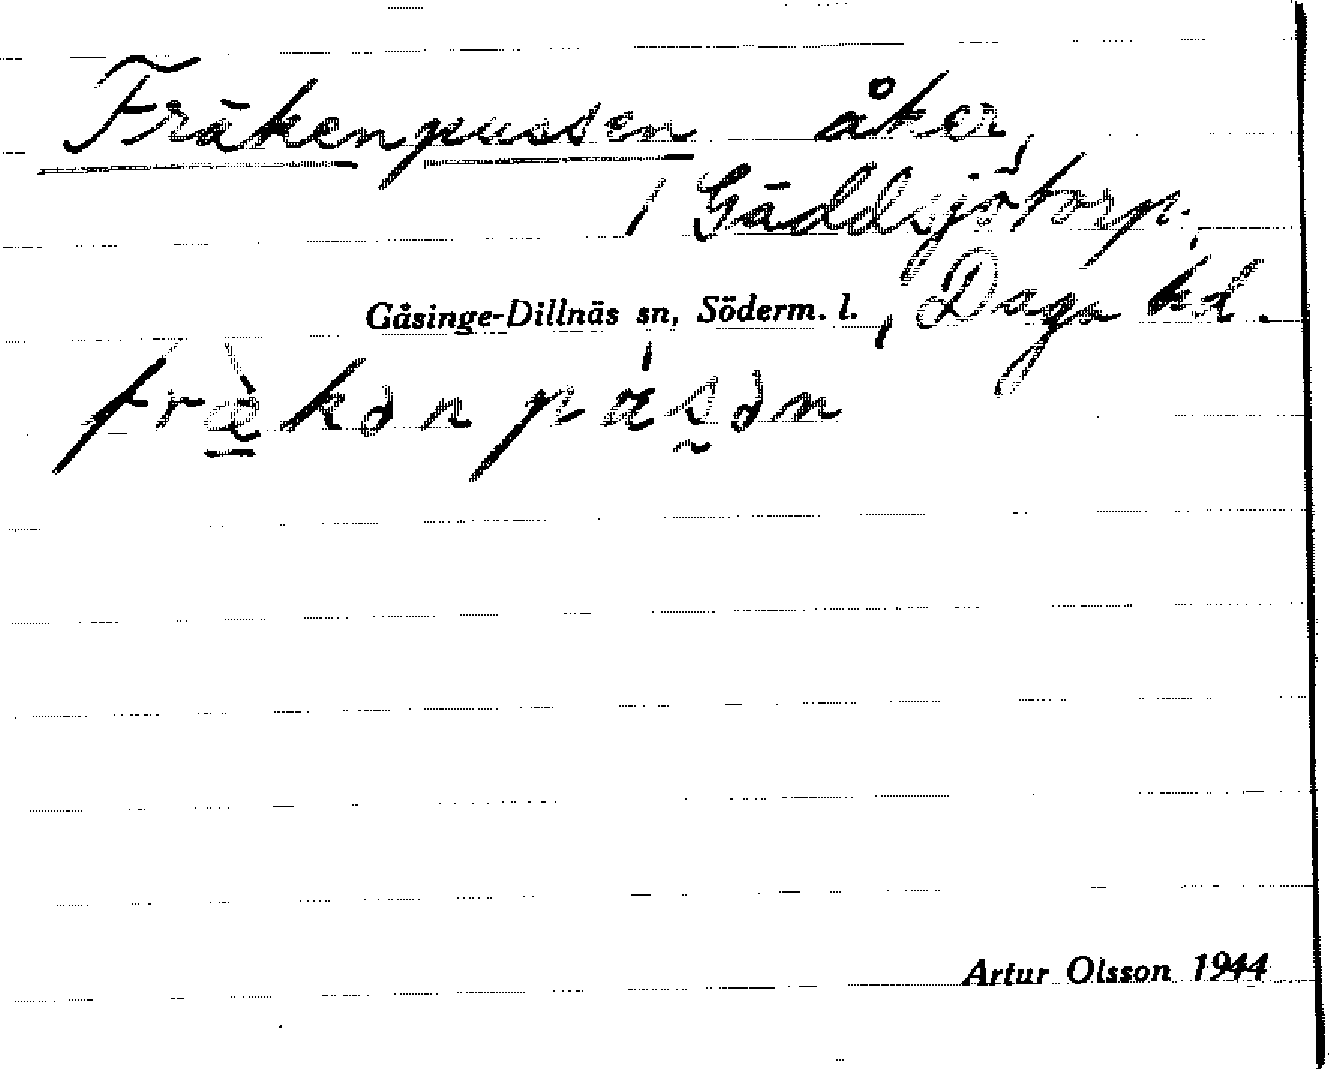 Fräkenpussen åker,
/ Gäddsjötorp.,
Gåsinge-Dillnäs sn, Söderm. l., Daga hd.
Artur Olsson 1944